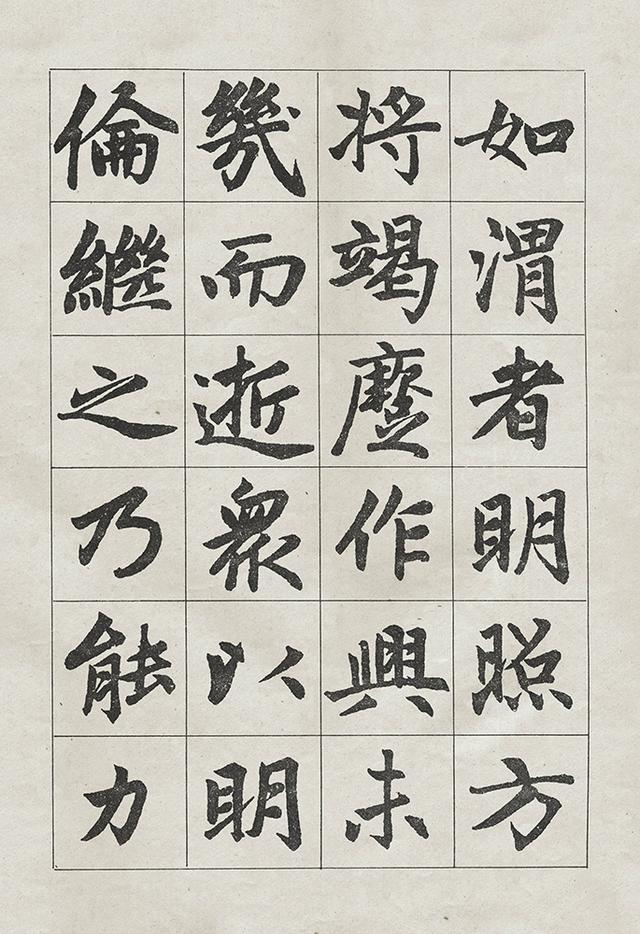 如渭者明照方
將竭塵作興未
幾而逝衆以明
倫繼之乃能力